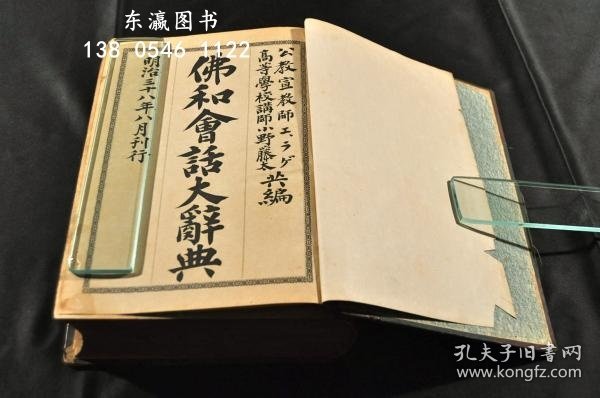 东瀛图书
138 0546 1122
公教宣教師エ、ラゲ
高等學校講師小野藤太 共編
佛和會話大辭典
明治三十八年八月刊行
孔夫子旧书网
www.kongfz.com